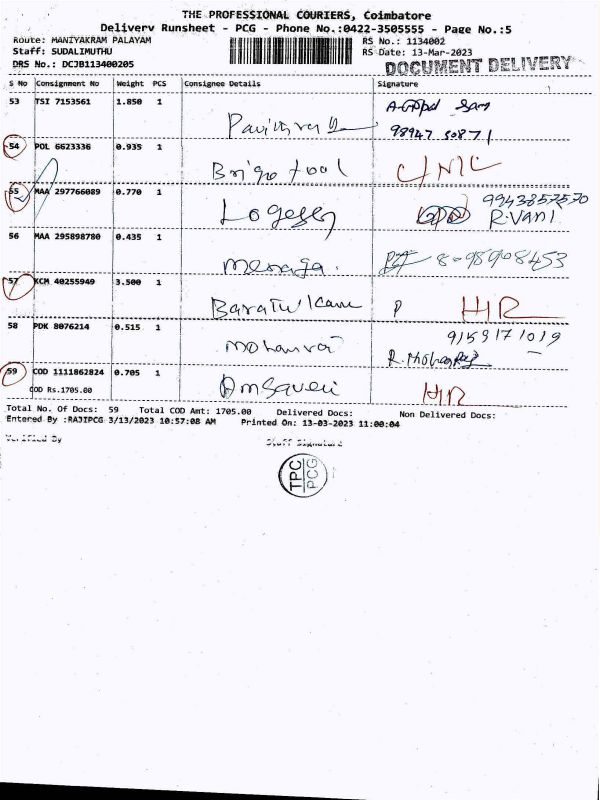 THE PROFESSIONAL COURIERS, Coimbatore
Delivery Runsheet - PCG - Phone No.:0422-3505555 - Page No.:5
Route: MANIYAKRAM PALAYAM RS No.: 1134002
Staff: SUDALIMUTHU RS Date: 13-Mar-2023
DRS No.: DCJB113400205 DOCUMENT DELIVERY
S No Consignment No Weight PCS Consignee Details Signature
53 TSI 7153561 1.850 1 A.Gopal Sam
98947 50871
54 POL 6623336 0.935 1 Brigo tool C/NIC
55 MAA 297766089 0.770 1 Logesh 9943857570
R.Vani
56 MAA 295898780 0.435 1 Menaga. 8098908453
57 KCM 40255949 3.500 1 P H/R
58 PDK 8076214 0.515 1 Mohanraj 9159171019
R. Mohanraj
59 COD 1111862824 0.705 1 Omsaveri H/R
COD Rs.1705.00
Total No. Of Docs: 59 Total COD Amt: 1705.00 Delivered Docs: Non Delivered Docs:
Entered By :RAJIPCG 3/13/2023 10:57:08 AM Printed On: 13-03-2023 11:00:04
Verified By Staff Signature
TPC
PCG